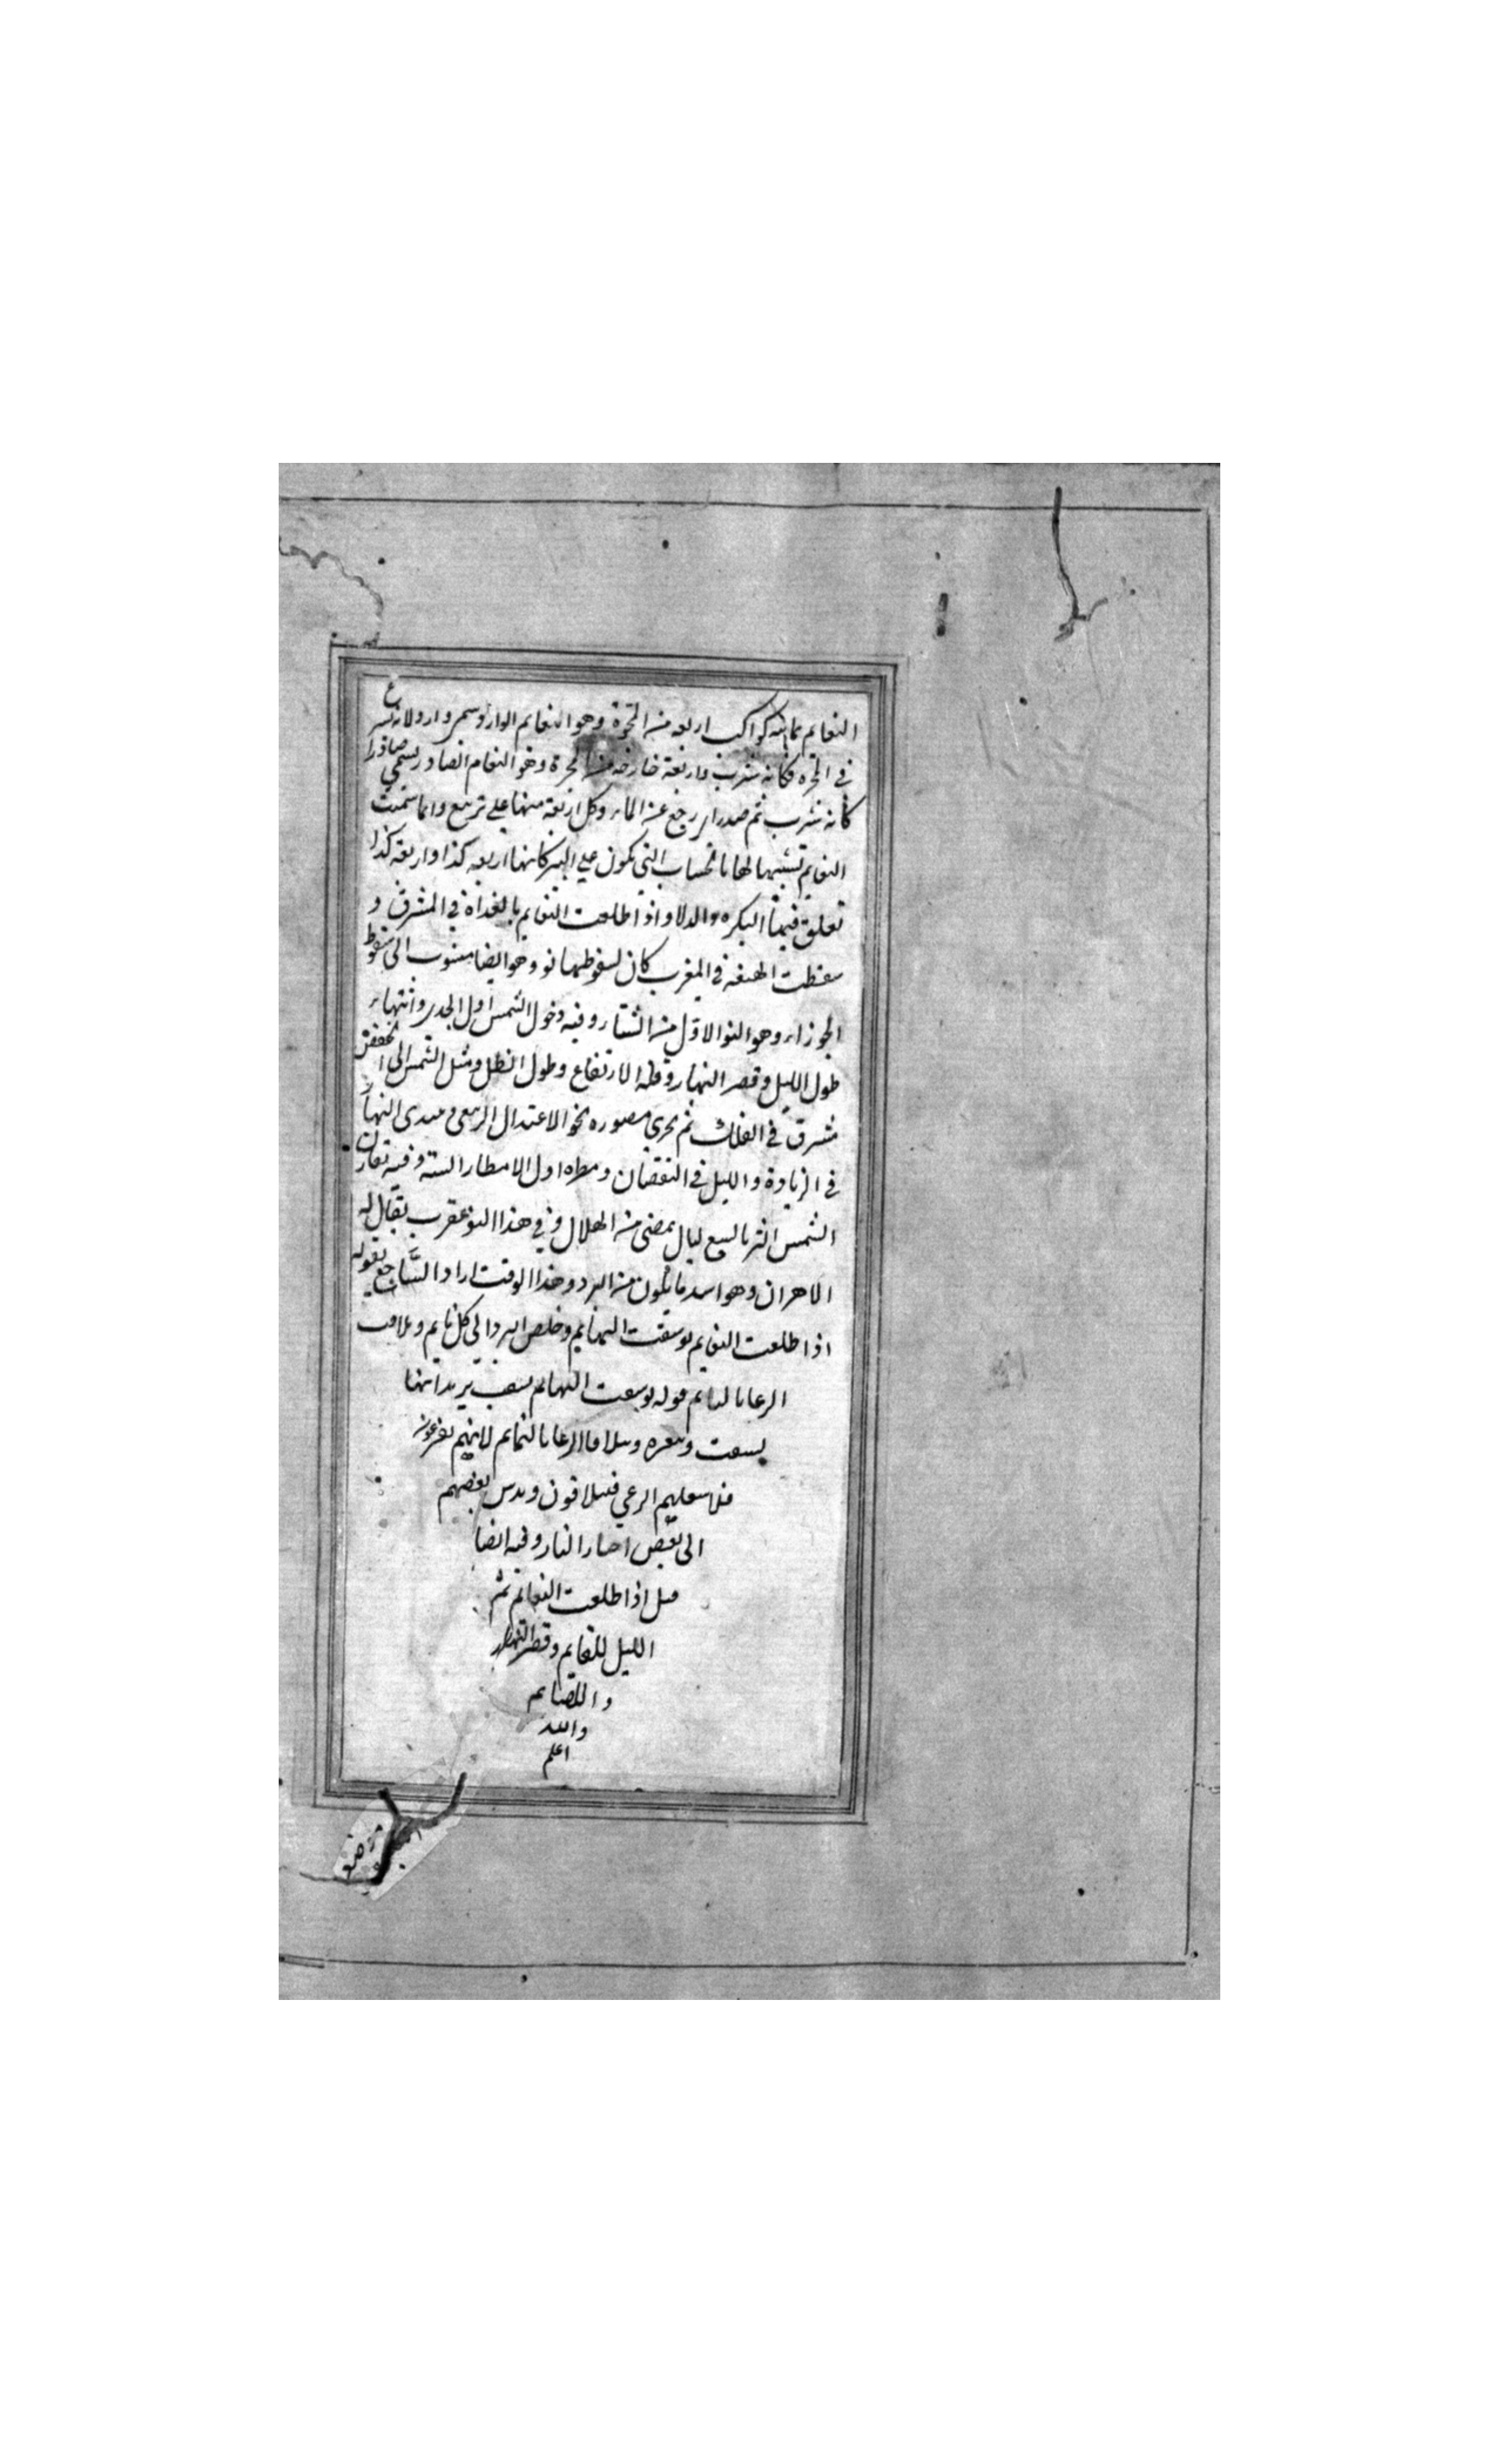 النعايم ثمانيه كواكب اربعه منه المجرة وهو النعايم الوارد وسمي واردا لانه شرع
في المجره فكانه شرب واربعة خارجه من المجرة وهو النعام الصادر يسمي صادرا
كانه شرب ثم صدر اي رجع عن الماء وكل اربعة منها علي تربيع وانما سميت
النعايم تشبيها لها بالخشاب التي تكون علي البير كانها اربعه كذا واربعه كذا
تعلق فيها البكره والدلا واذا طلعت النعايم بالغداة في المشرق و
سقطت الهنعه في المغرب كان لسقوطها نو وهو ايضا منسوب الى سقوط
الجوزاء وهو النوا الاول من الشتاء وفيه دخول الشمس اول الجدى وانتهاء
طول الليل وقصر النهار وقلة الارتفاع وطول الظل وميل الشمس الى اخفض
مشرق في الفلك ثم تجري مصوره نحو الاعتدال الربيعي و النهار
في الزيادة والليل في النقصان ومطره اول الامطار الستة وفيه تقارن
الشمس الثريا لسبع ليال يمضي من الهلال وفي هذا النو عقرب يقال له
الاهران وهو اسد ما يكون من البرد وهذا الوقت اراد الساجع بقوله
اذا طلعت النعايم توسقت البهايم وخلص البرد الي كل نايم وتلاقت
الرعا بالنمايم قوله توسقت البهايم يريد انها
الرعا بالنمايم لانهم يفرغون
الرعي فيتلاقون ويدس بعضهم
الى بعض اخبار النار وفيه ايضا
قيل اذا طلعت النعايم تم
الليل للقايم وقصر النهار
و اللصايم
والله
اعلم